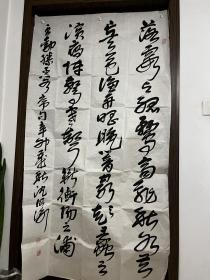 落霞与孤鹜齐飞秋水共
长天一色渔舟唱晚响穷彭蠡之
滨雁阵惊寒声断衡阳之浦
王勃滕王阁序句辛卯